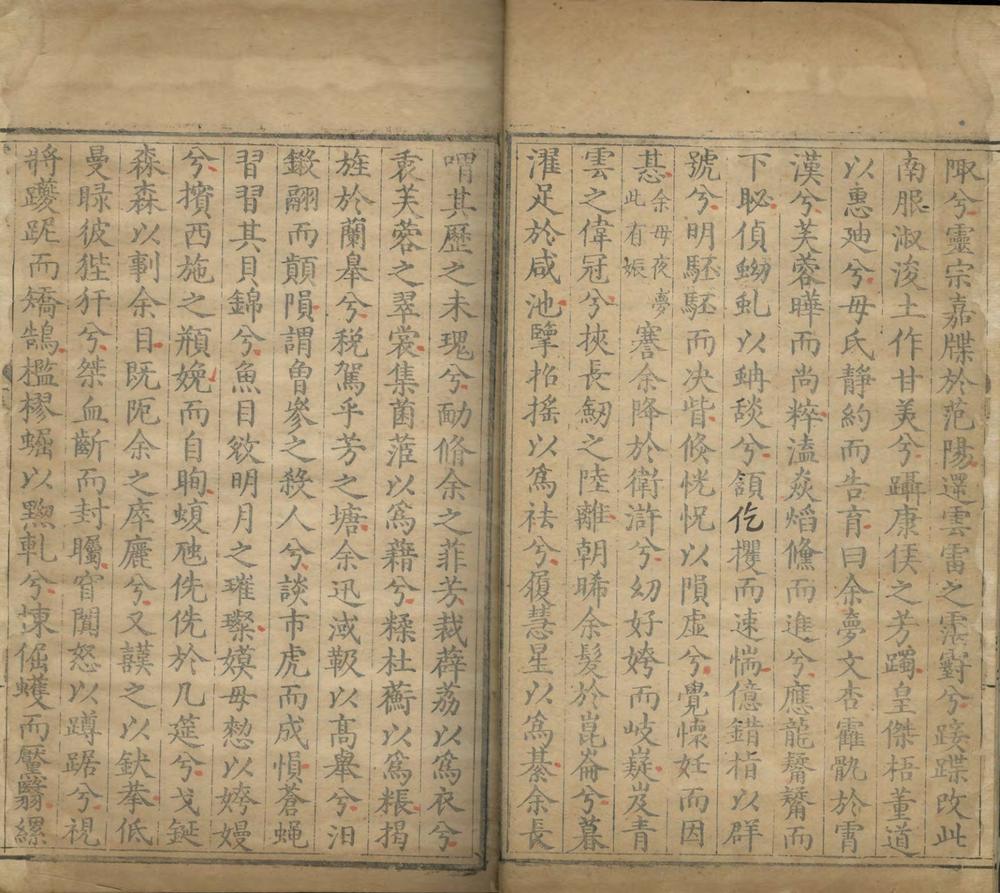 陬兮靈宗嘉牒於范陽還雲雷之霮䨴兮蹊蹀改此
南服淑浚土作甘美兮躡康侯之芳躅皇傑梧董道
以惠迪兮母氏靜約而告育曰余夢文杏靃骩於霄
漢兮芙蓉曄而尚粹溘焱熖儵而進兮應龍䰇䰇而
下肹偵蚴虬以蚺舕兮頷仡欔而速惴億錯愕以群
號兮明駓駓而决眥倏恍怳以隕虛兮覺懷妊而因
惎余母夜夢此有娠 謇余降於衛滸兮幼好姱而岐嶷岌青
雲之偉冠兮挾長劒之陸離朝晞余髮於崑崙兮暮
濯足於咸池擥招搖以爲袪兮履慧星以爲綦余長
喟其歷之未瑰兮勔脩余之菲芳裁薜荔以爲衣兮
袤芙蓉之翠裳集菌蓲以爲藉兮糅杜蘅以爲粻揭
旌於蘭皋兮稅駕乎芳之塘余迅淢馭以高舉兮汩
鎩翮而顛隕謂魯參之殺人兮談市虎而成慣蒼蝇
習習其貝錦兮魚目欻明月之璀璨嫫母愸以姱嫚
兮擯西施之頩婉而自眴蝮虺侁侁於几筵兮戈鋋
森森以剚余目既阨余之庠廱兮又謨之以鈌莑低
曼睩彼狴犴兮桀血齗而封矚窅闃怒以蹲踞兮視
將躨跜而矯鵠檻樛蝹以黝軋兮悚倔蠖而黶翳縲